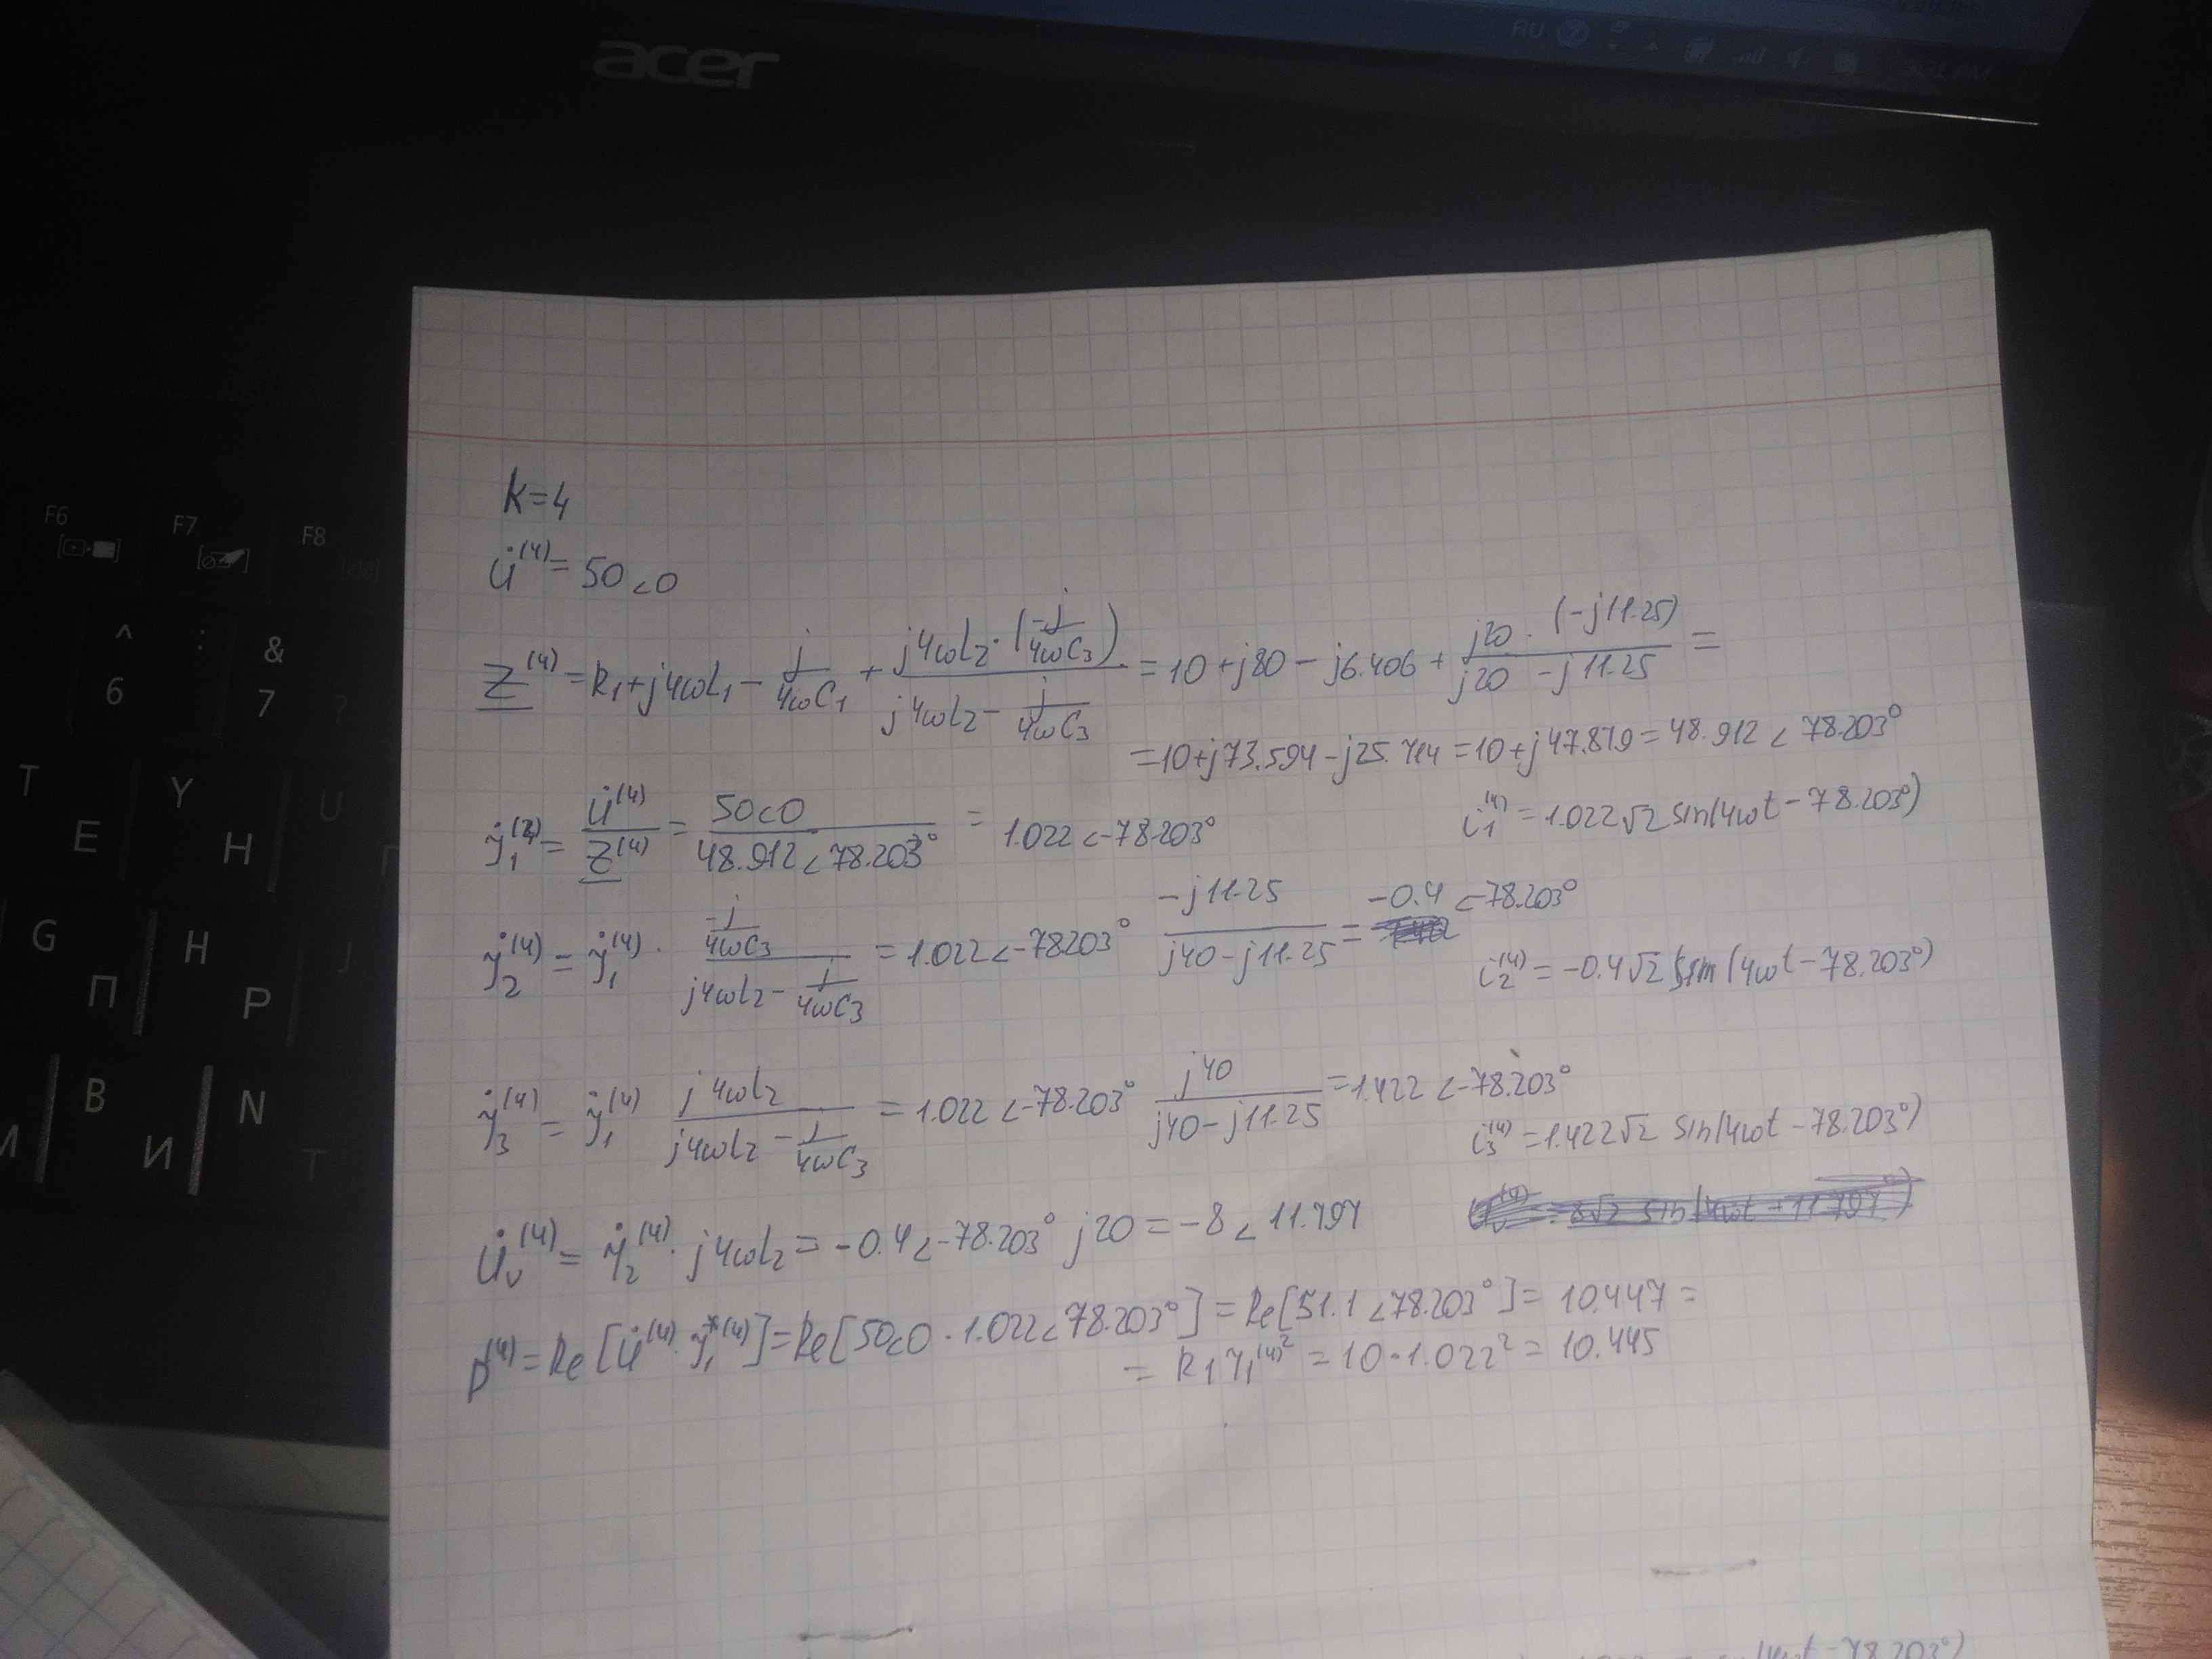 RU
acer
K=4
U̇⁽⁴⁾ = 50∠0
Z⁽⁴⁾ = R₁ + j4ωL₁ − j/(4ωC₁) + (j4ωL₂ · (−j/(4ωC₃)))/(j4ωL₂ − j/(4ωC₃)) = 10 + j80 − j6.406 + (j20 · (−j11.25))/(j20 − j11.25) =
= 10 + j73.594 − j25.714 = 10 + j47.879 = 48.912 ∠ 78.203°
U̇⁽⁴⁾/Z⁽⁴⁾ = 50∠0/(48.912∠78.203°) = 1.022 ∠−78.203°
i₁⁽⁴⁾ = 1.022√2 sin(4ωt − 78.203°)
İ₂⁽⁴⁾ = İ₁⁽⁴⁾ · (−j/(4ωC₃))/(j4ωL₂ − j/(4ωC₃)) = 1.022 ∠−78.203° (−j11.25)/(j40 − j11.25) = −0.4 ∠−78.203°
i₂⁽⁴⁾ = −0.4√2 sin(4ωt − 78.203°)
İ₃⁽⁴⁾ = İ₁⁽⁴⁾ (j4ωL₂)/(j4ωL₂ − j/(4ωC₃)) = 1.022 ∠−78.203° (j40)/(j40 − j11.25) = 1.422 ∠−78.203°
i₃⁽⁴⁾ = 1.422√2 sin(4ωt − 78.203°)
U̇ᵥ⁽⁴⁾ = İ₂⁽⁴⁾ · j4ωL₂ = −0.4∠−78.203° j20 = −8 ∠ 11.797
P⁽⁴⁾ = Re[U̇⁽⁴⁾ · I₁*⁽⁴⁾] = Re[50∠0 · 1.022∠78.203°] = Re[51.1∠78.203°] = 10.447 =
= R₁I₁⁽⁴⁾² = 10 · 1.022² = 10.445
F6
F7
F8
^
6
:
&
7
?
T
E
Y
Н
U
G
П
H
Р
J
B
И
N
Т